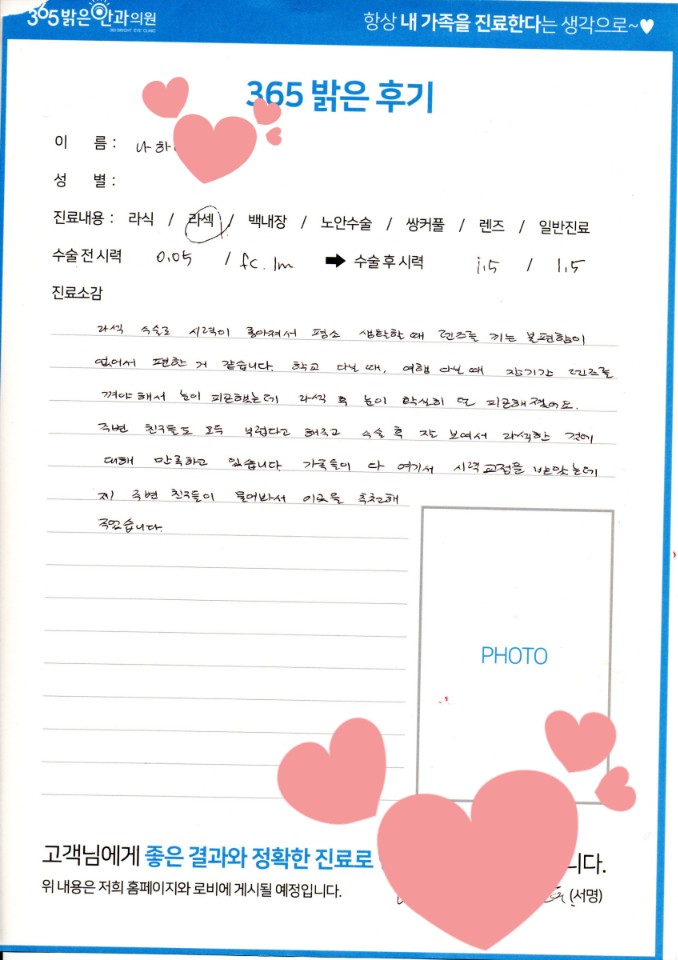 365 밝은안과의원
365 BRIGHT EYE CLINIC
항상 내 가족을 진료한다는 생각으로~♥
365 밝은 후기
이 름 : 나하
성 별 :
진료내용 : 라식 / 라섹 / 백내장 / 노안수술 / 쌍커풀 / 렌즈 / 일반진료
수술 전 시력 0.05 / fc.1m ➡ 수술 후 시력 1.5 / 1.5
진료소감
라섹 수술로 시력이 좋아져서 평소 생활할 때 렌즈를 끼는 불편함이
없어서 편한 거 같습니다. 학교 다닐 때, 여행 다닐 때 장기간 렌즈를
껴야 해서 눈이 피곤했는데 라섹 후 눈이 확실히 덜 피곤해졌어요.
주변 친구들도 모두 부럽다고 해주고 수술 후 잘 보여서 라섹한 것에
대해 만족하고 있습니다 가족들이 다 여기서 시력교정을 받았는데
제 주변 친구들이 물어봐서 이곳을 추천해
주었습니다.
PHOTO
고객님에게 좋은 결과와 정확한 진료로 니다.
위 내용은 저희 홈페이지와 로비에 게시될 예정입니다.
(서명)